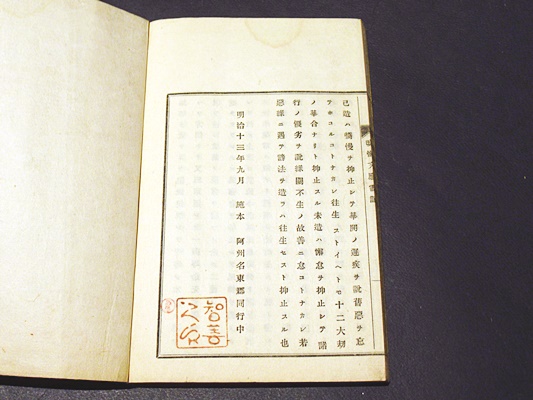 已造ハ憍慢ヲ抑止シテ華開ノ遲疾ヲ説善惡ヲ忘
ヲホコルコトナカレ往生ストイヘトモ十二大劫
ノ華合ナリト抑止スル未造ハ懈怠ヲ抑止シテ諸
行ノ懸劣ヲ説謀開不生ノ故善ニ怠コトナカレ若
惡謀ニ遇テ謗法ヲ造ラハ往生セスト抑止スル也
明治十三年九月 施本 阿州名東郷同行中
智善